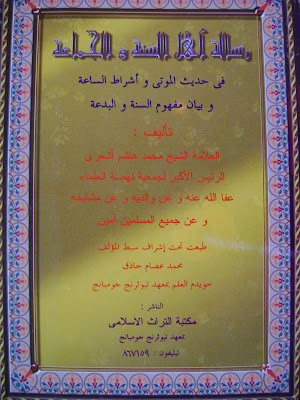 رسالة أهل السنة و الجماعة
فى حديث الموتى و أشراط الساعة
و بيان مفهوم السنة و البدعة
تأليف :
العلامة الشيخ محمد هاشم أشعرى
الرئيس الأكبر لجمعية نهضة العلماء
عفا الله عنه و عن والديه و عن مشايخه
و عن جميع المسلمين آمين
طبعت تحت إشراف سبط المؤلف
محمد عصام حاذق
خويدم العلم بمعهد تبوئرنج جومبانج
الناشر :
مكتبة التراث الاسلامى
بمعهد تبوئرنج جومبانج
تيليفون : ٨٦٧١٥٩